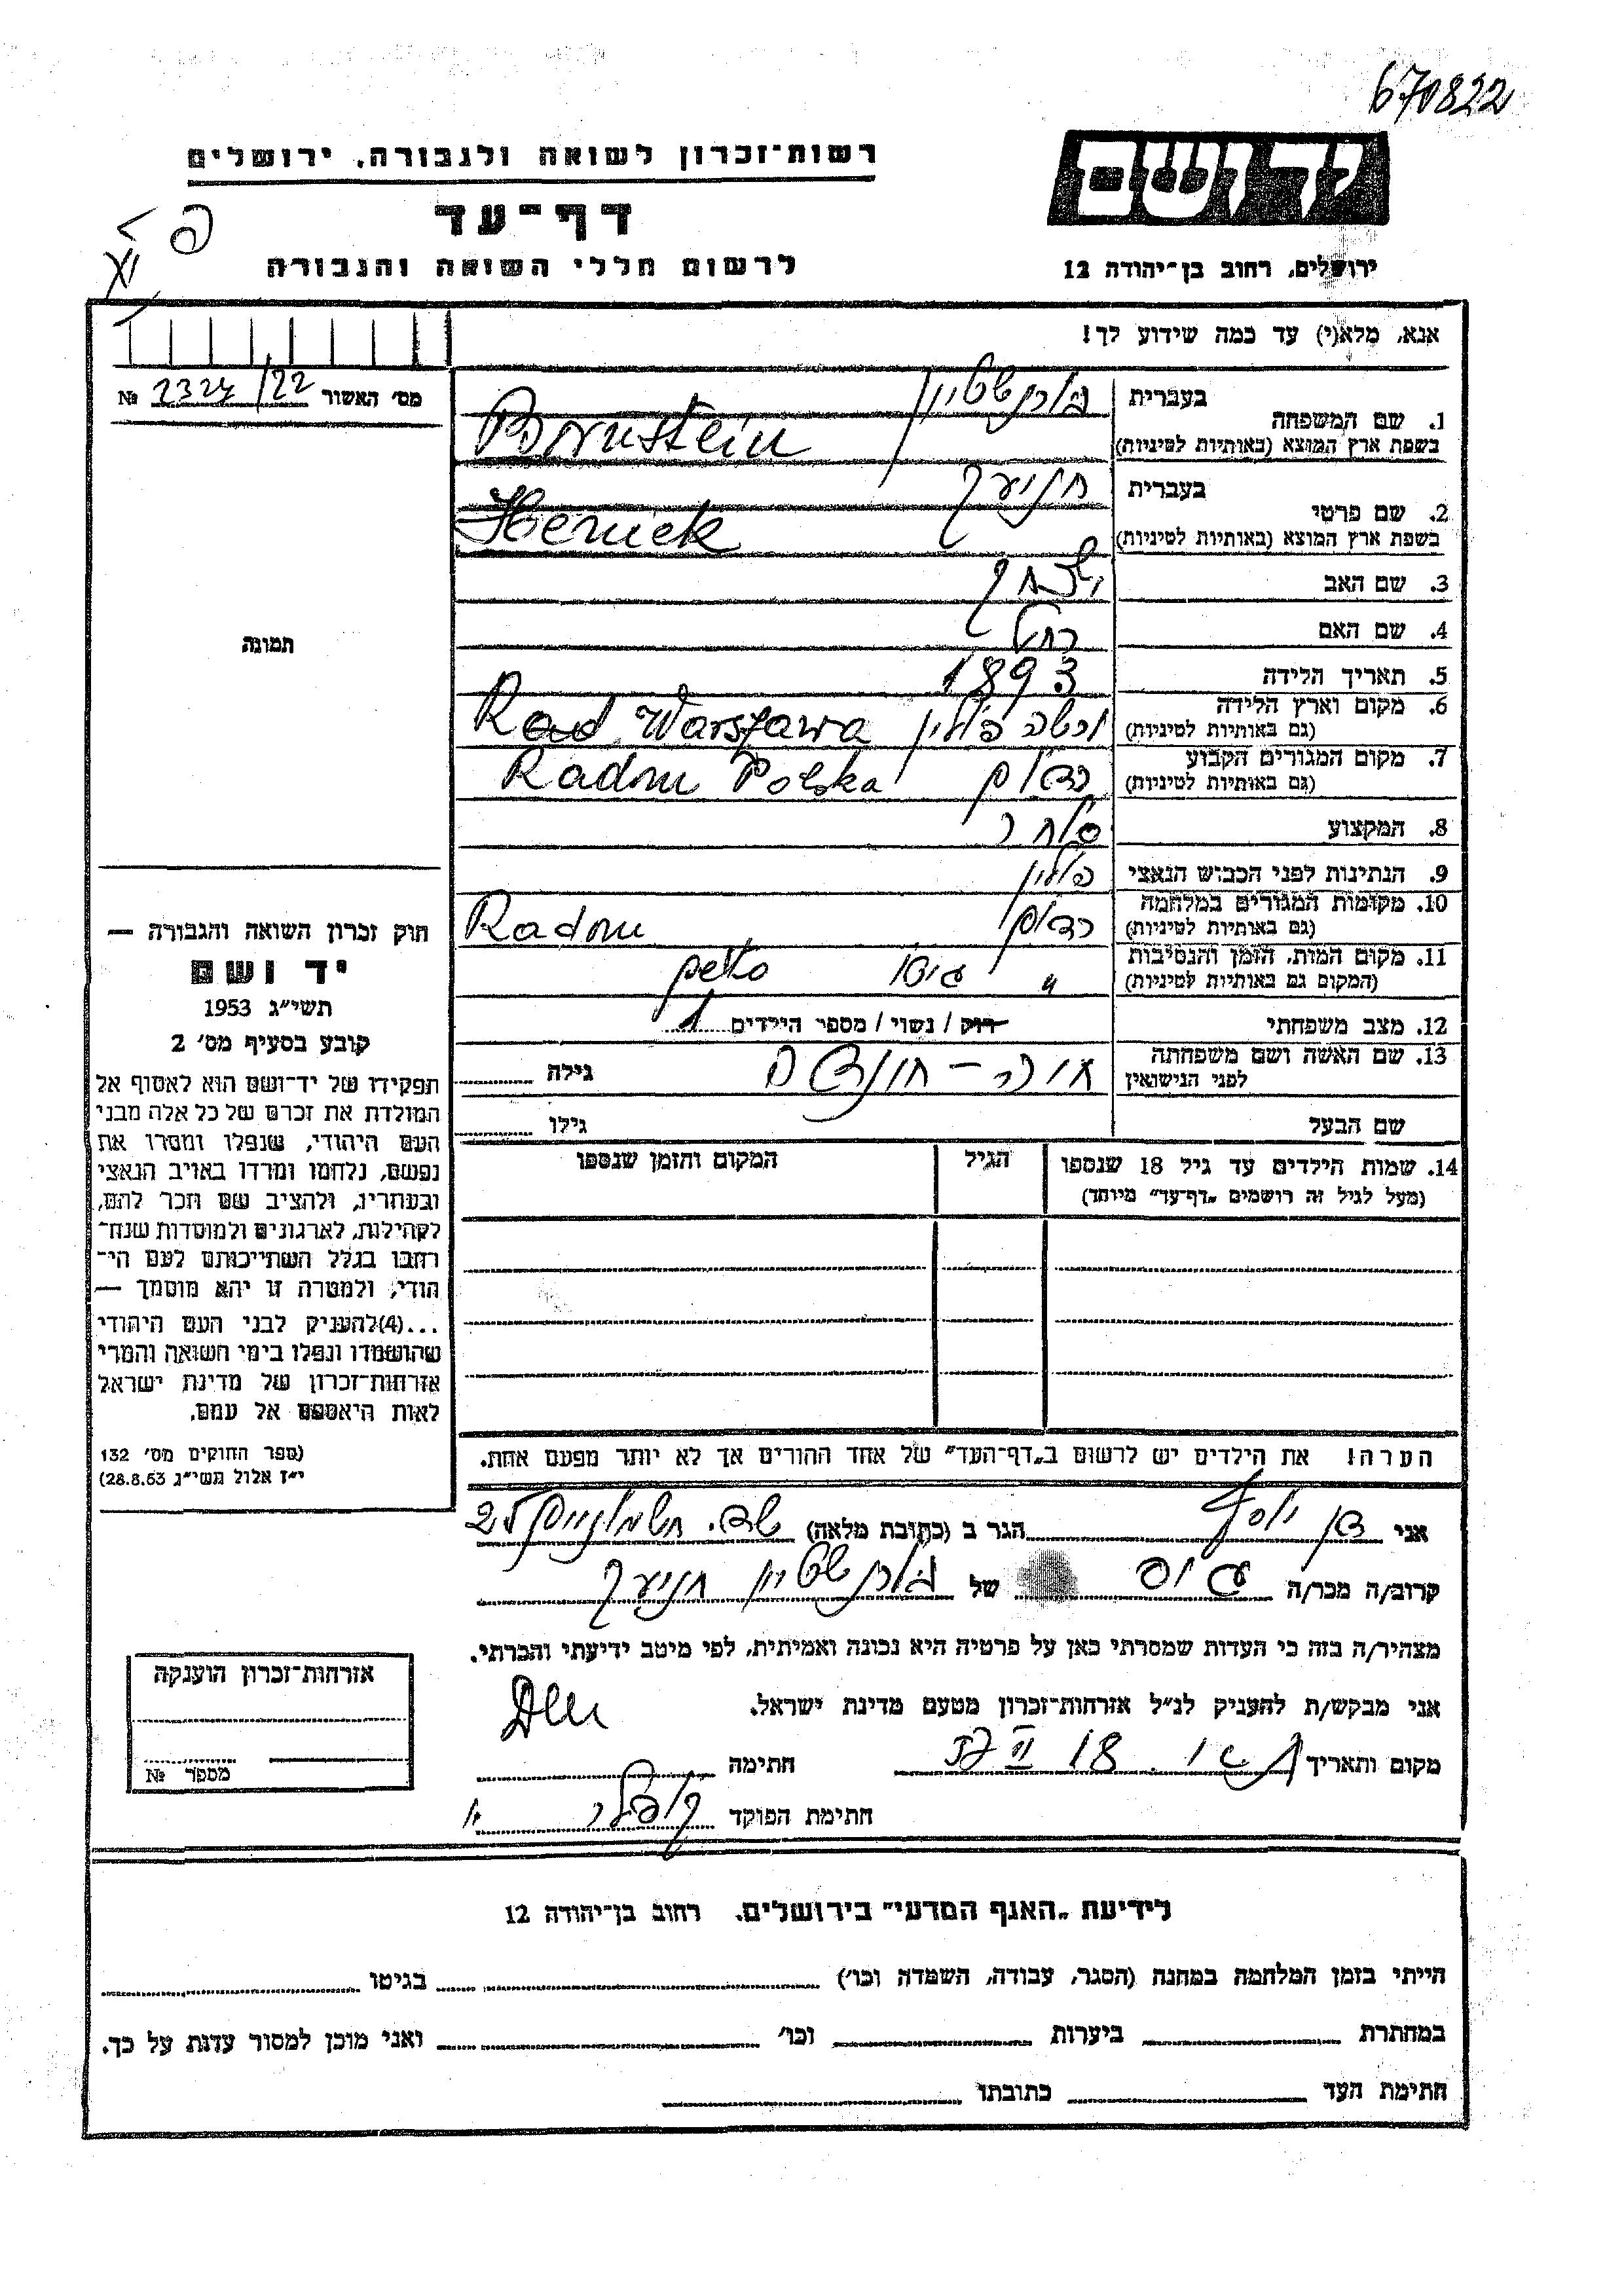 670822
רשות־זכרון לשואה ולגבורה, ירושלים
יד ושם
דף־עד
לרשום חללי השואה והגבורה
ירושלים, רחוב בן־יהודה 12
אנא, מלא(י) עד כמה שידוע לך!
מס׳ האשור 2324/22 №
1. שם המשפחה
בעברית בורנשטיין
בשפת ארץ המוצא (באותיות לטיניות) Bornstein
2. שם פרטי
בעברית חניעך
בשפת ארץ המוצא (באותיות לטיניות) Heniek
3. שם האב
4. שם האם רחל
5. תאריך הלידה 1893
6. מקום וארץ הלידה
(גם באותיות לטיניות) ורשה פולין Warszawa Rad
7. מקום המגורים הקבוע
(גם באותיות לטיניות) רדום Radom Polska
8. המקצוע סוחר
9. הנתינות לפני הכבוש הנאצי פולין
10. מקומות המגורים במלחמה
(גם באותיות לטיניות) רדום Radom
11. מקום המות, הזמן והנסיבות
(המקום גם באותיות לטיניות) " גיטו
12. מצב משפחתי רוק / נשוי / מספר הילדים 1
13. שם האשה ושם משפחתה
לפני הנישואין
גילה
שם הבעל גילו
14. שמות הילדים עד גיל 18 שנספו
(מעל לגיל זה רושמים „דף־עד” מיוחד)
הגיל
המקום והזמן שנספו
הערה! את הילדים יש לרשום ב„דף־העד” של אחד ההורים אך לא יותר מפעם אחת.
תמונה
חוק זכרון השואה והגבורה —
יד ושם
תשי״ג 1953
קובע בסעיף מס׳ 2
תפקידו של יד־ושם הוא לאסוף אל
המולדת את זכרם של כל אלה מבני
העם היהודי, שנפלו ומסרו את
נפשם, נלחמו ומרדו באויב הנאצי
ובעוזריו, ולהציב שם וזכר להם,
לקהילות, לארגונים ולמוסדות שנח־
רבו בגלל השתייכותם לעם הי־
הודי, ולמטרה זו יהא מוסמך —
...(4) להעניק לבני העם היהודי
שהושמדו ונפלו בימי השואה והמרי
אזרחות־זכרון של מדינת ישראל
לאות היאספם אל עמם.
(ספר החוקים מס׳ 132
י״ז אלול תשי״ג 28.8.53)
אני דן יוסף הגר ב (כתובת מלאה)
קרוב/ה מכר/ה של בורנשטיין חניעך
מצהיר/ה בזה כי העדות שמסרתי כאן על פרטיה היא נכונה ואמיתית, לפי מיטב ידיעתי והכרתי.
אני מבקש/ת להעניק לנ״ל אזרחות־זכרון מטעם מדינת ישראל.
מקום ותאריך חתימה
חתימת הפוקד
אזרחות־זכרון הוענקה
מספר №
לידיעת „האגף המדעי” בירושלים, רחוב בן־יהודה 12
הייתי בזמן המלחמה במחנה (הסגר, עבודה, השמדה וכו׳) בגיטו
במחתרת ביערות וכו׳ ואני מוכן למסור עדות על כך.
חתימת העד כתובתו